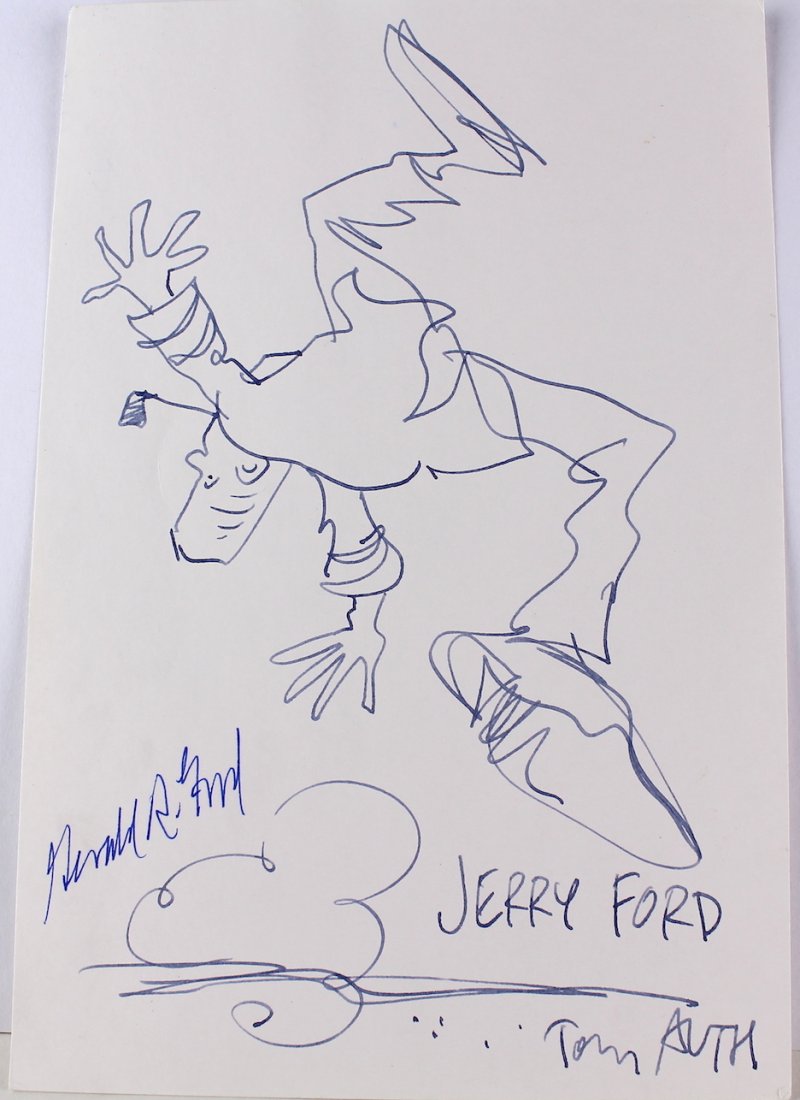 Gerald R. Ford
JERRY FORD
Tom AUTH